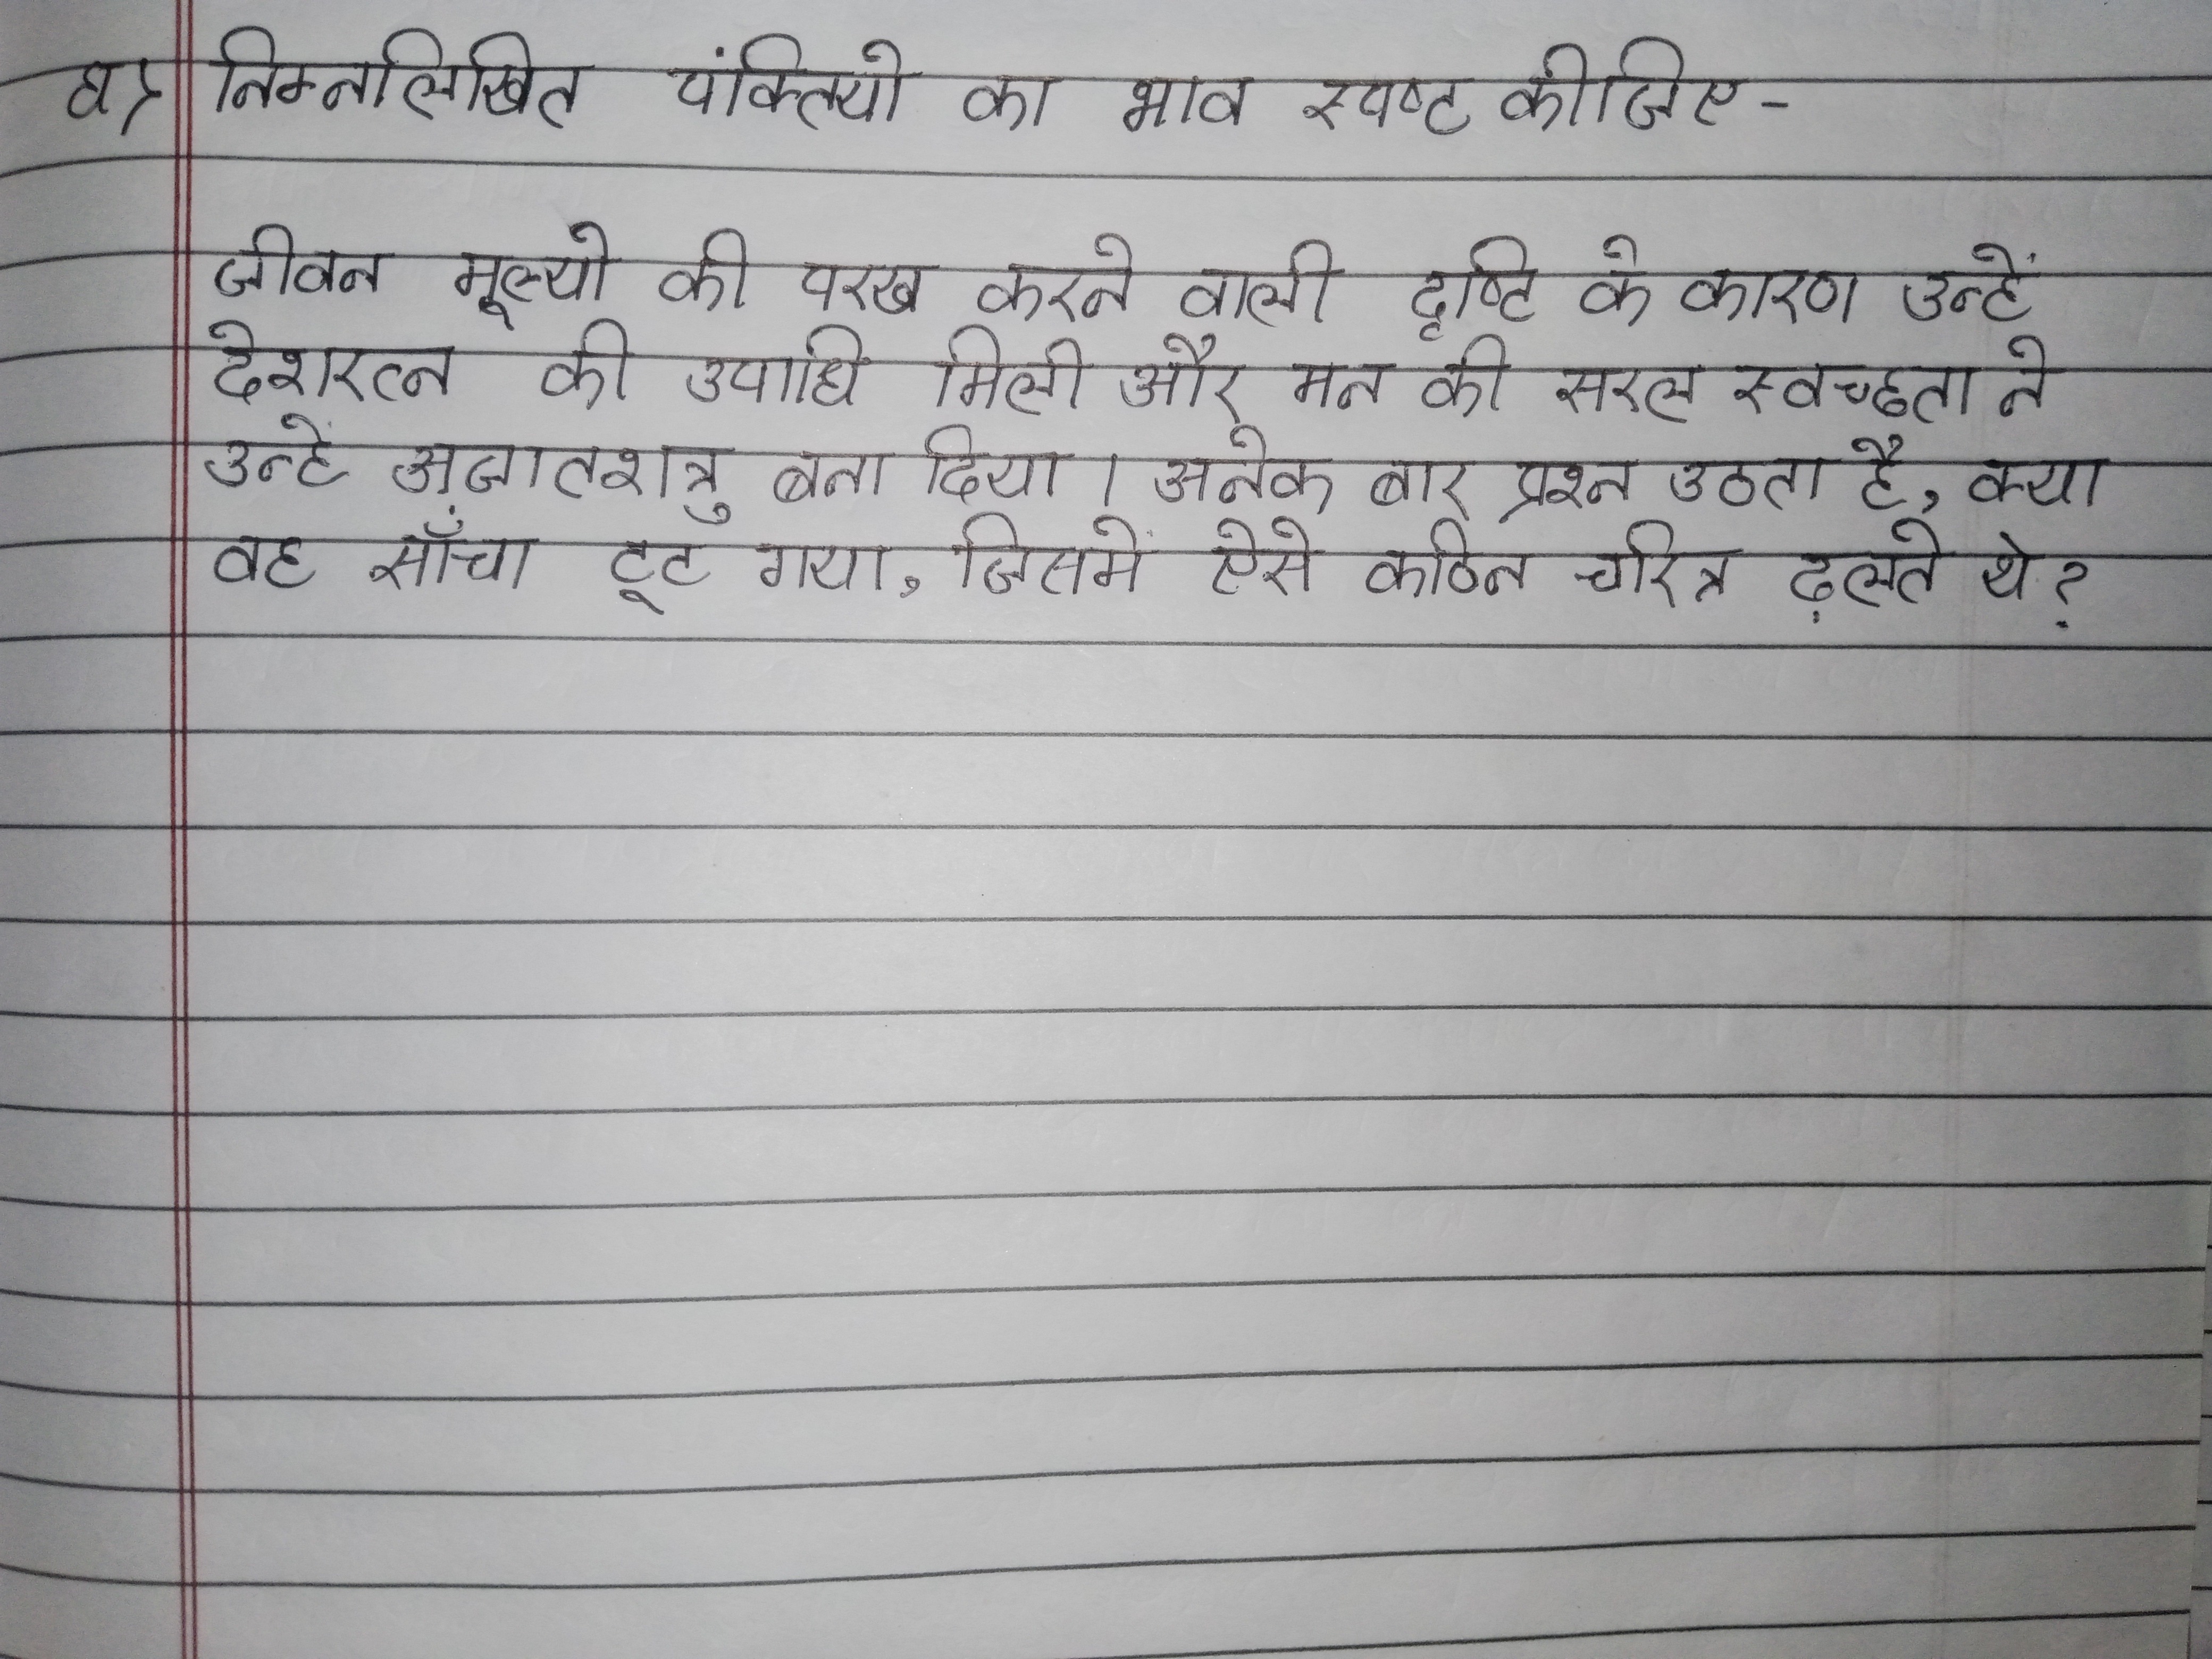 घ) निम्नलिखित पंक्तियो का भाव स्पष्ट कीजिए -
जीवन मूल्यो की परख करने वाली दृष्टि के कारण उन्हें
देशरत्न की उपाधि मिली और मन की सरल स्वच्छता ने
उन्हें अजातशत्रु बना दिया । अनेक बार प्रश्न उठता है, क्या
वह साँचा टूट गया, जिसमें ऐसे कठिन चरित्र ढ़लते थे ?